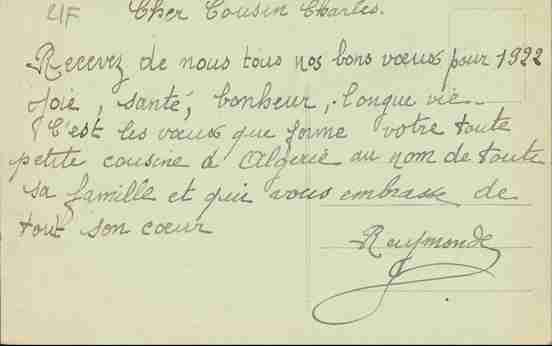 Cher Cousin Charles.
Recevez de nous tous nos bons vœux pour 1922
Joie, santé, bonheur, longue vie.
C'est les vœux que forme votre toute
petite cousine d'Algerie au nom de toute
sa famille et qui vous embrasse de
tout son cœur
Raymonde